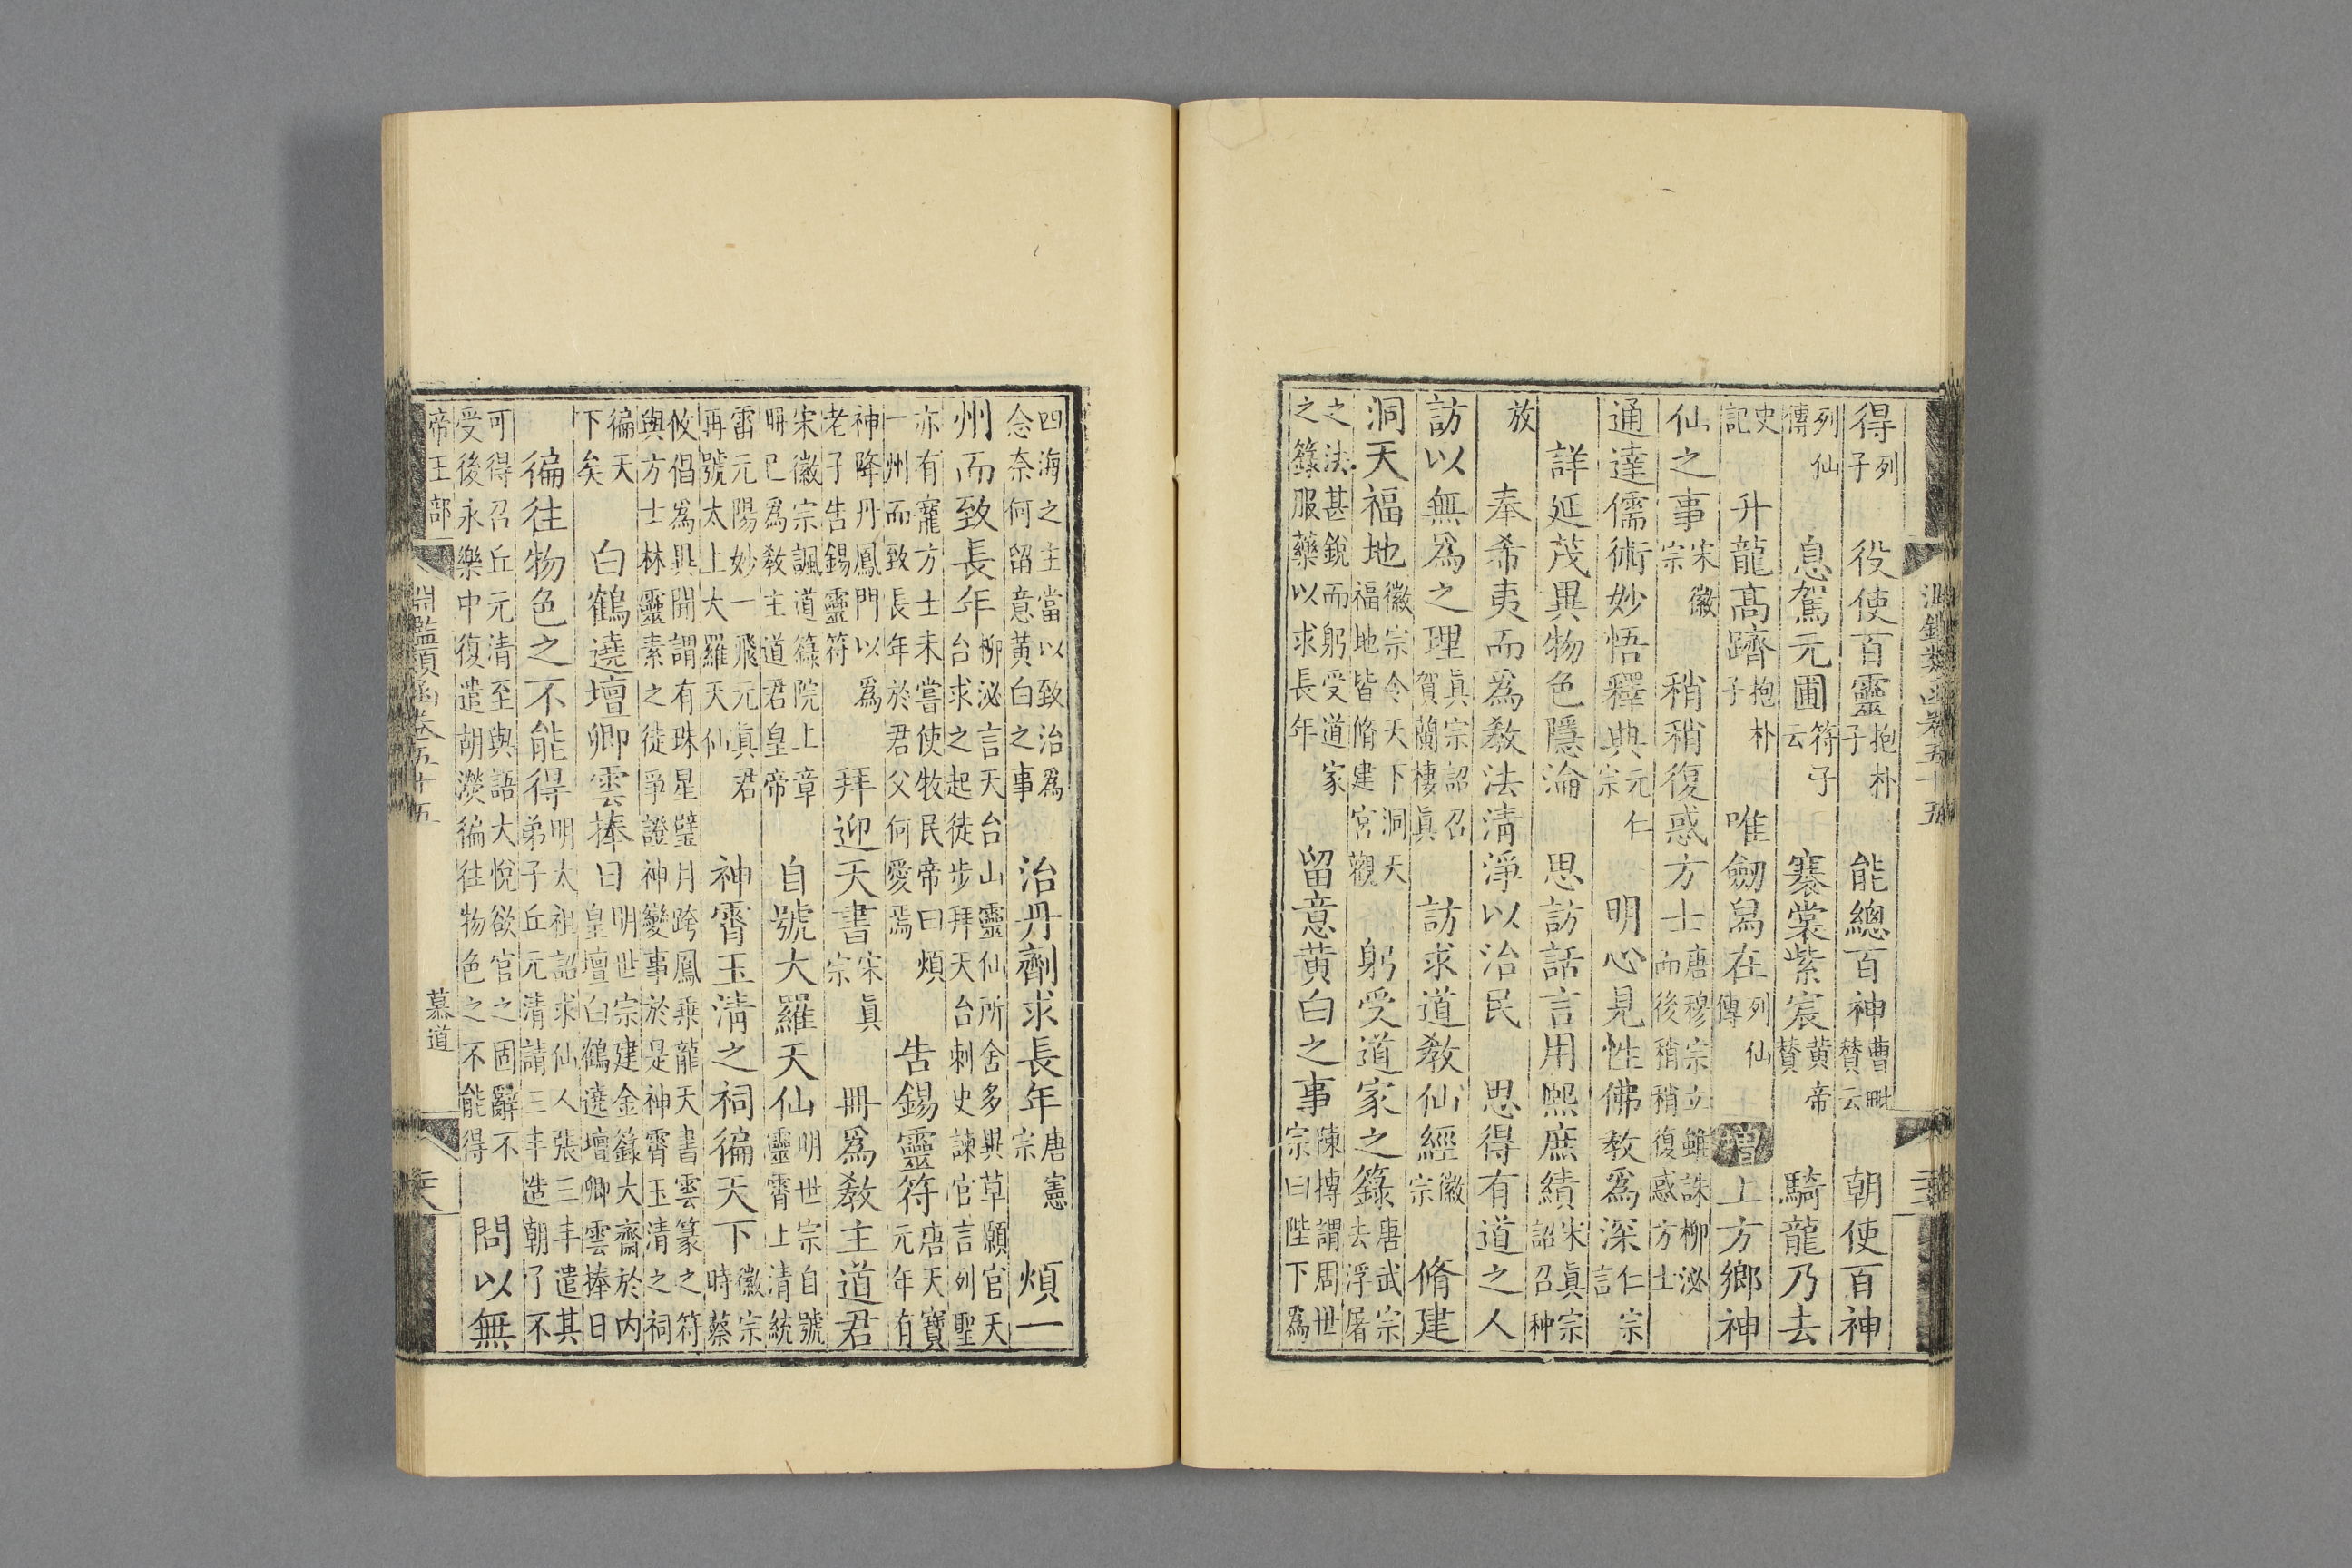 淵鑑類函卷五十五
得列子　役使百靈抱朴子　能總百神曹毗贊云　朝使百神
列仙傳　息駕元圃符子云　褰裳紫宸黃帝贊　騎龍乃去
史記　升龍高躋抱朴子　唯劒舄在列仙傳　增　上方鄉神
仙之事宋徽宗　稍稍復惑方士唐穆宗立雖誅柳泌而後稍稍復惑方士
通達儒術妙悟釋典元仁宗　明心見性佛教爲深仁宗言
詳延茂異物色隱淪　思訪話言用熙庶績宋眞宗詔召种
放　奉希夷而爲教法清淨以治民　思得有道之人
訪以無爲之理眞宗詔召賀蘭棲眞　訪求道教仙經徽宗　脩建
洞天福地徽宗令天下洞天福地皆脩建宮觀　躬受道家之籙唐武宗去浮屠
之法甚銳而躬受道家之籙服藥以求長年　留意黃白之事陳摶謂周世宗曰陛下爲
四海之主當以致治爲念奈何留意黃白之事　治丹劑求長年唐憲宗　煩一
州而致長年柳泌言天台山靈仙所舍多異草願官天台求之起徒步拜天台刺史諫官言列聖
亦有寵方士未嘗使牧民帝曰煩一州而致長年於君父何愛焉　告錫靈符唐天寶元年有
神降丹鳳門以爲老子告錫靈符　拜迎天書宋眞宗　冊爲教主道君
宋徽宗諷道籙院上章冊已爲教主道君皇帝　自號大羅天仙明世宗自號靈霄上清統
雷元陽妙一飛元眞君再號太上大羅天仙　神霄玉清之祠徧天下徽宗時蔡
攸倡爲異聞謂有珠星璧月跨鳳乘龍天書雲篆之符與方士林靈素之徒爭證神變事於是神霄玉清之祠
徧天下矣　白鶴遶壇卿雲捧日明世宗建金籙大齋於內皇壇白鶴遶壇卿雲捧日
徧往物色之不能得明太祖詔求仙人張三丰遣其弟子丘元清請三丰造朝了不
可得召丘元清至與語大悅欲官之固辭不受後永樂中復遣胡濙徧往物色之不能得　問以無
帝王部
淵鑑類函卷五十五
慕道